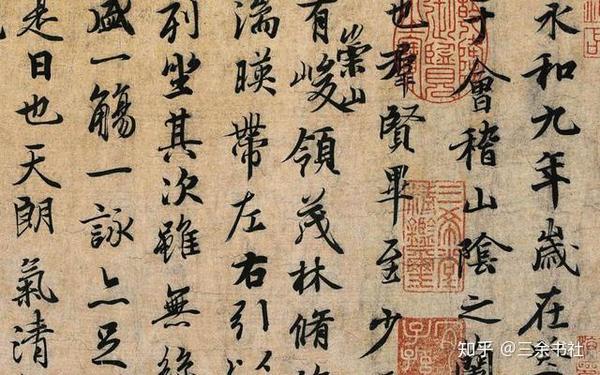 永和九年歲在
于會稽山陰之蘭
也羣賢畢至少
有崇山峻領茂林脩
湍暎帶左右引以
列坐其次雖無絲
盛一觴一詠亦足
是日也天朗氣清
三希堂
精鑑璽
知乎 @三余书社